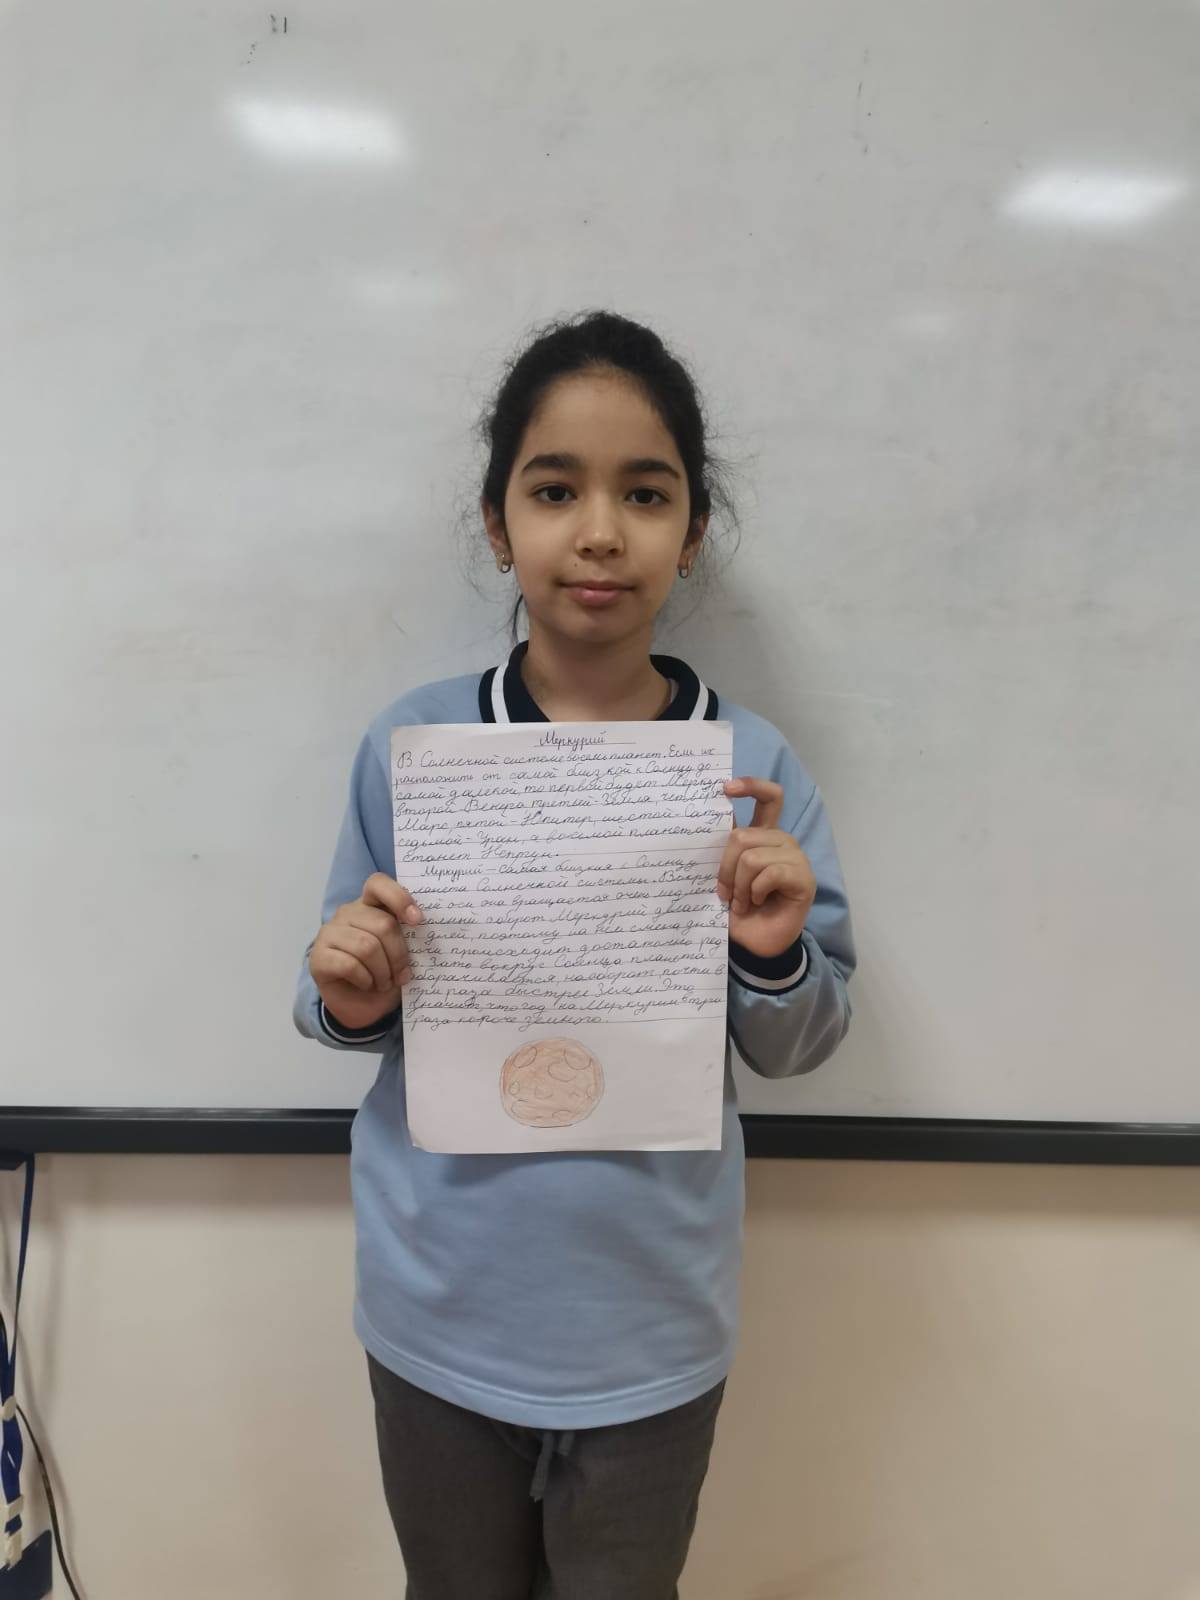 Меркурий
В Солнечной системе восемь планет. Если их
расположить от самой близкой к Солнцу до
самой далекой, то первой будет Меркурий
второй- Венера третьей- Земля, четвёртой
Марс, пятой- Юпитер, шестой- Сатурн,
седьмой- Уран, а восьмой планетой
станет Нептун.
Меркурий – самая близкая к Солнцу
планета Солнечной системы. Вокруг
своей оси она вращается очень медленно
полный оборот Меркурий делает за
58 дней, поэтому на ней смена дня и
ночи происходит достаточно ред-
ко. Зато вокруг Солнца планета
оборачивается, наоборот, почти в
три раза быстрее Земли. Это
значит, что год на Меркурии в три
раза короче земного.